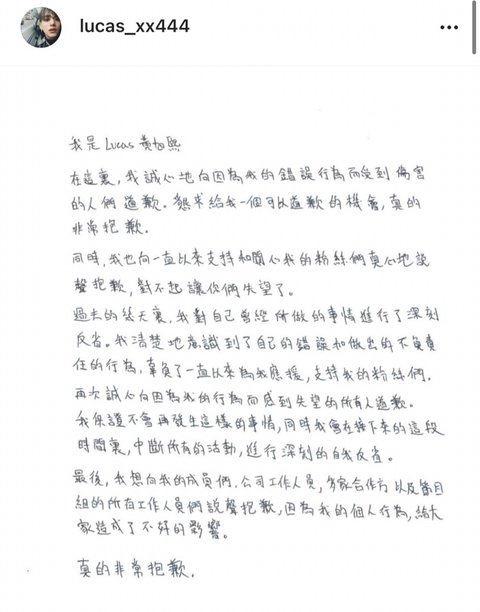 lucas_xx444
我是Lucas 黃旭熙
在這裏，我誠心地向因為我的錯誤行為而受到傷害
的人們道歉。懇求給我一個可以道歉的機會，真的
非常抱歉.
同時，我也向一直以來支持和關心我的粉絲們真心地說
聲抱歉，對不起讓你們失望了。
過去的幾天裏，我對自己曾經所做的事情進行了深刻
反省。我清楚地意識到了自己的錯誤和做出的不負責
任的行為，辜負了一直以來為我應援，支持我的粉絲們.
再次誠心向因為我的行為而感到失望的所有人道歉。
我保證不會再發生這樣的事情，同時我會在接下來的這段
時間裏，中斷所有的活動，進行深刻的自我反省。
最後，我想向我的成員們.公司工作人員，多家合作方以及節目
組的所有工作人員們說聲抱歉，因為我的個人行為，給大
家造成了不好的影響。
真的非常抱歉.